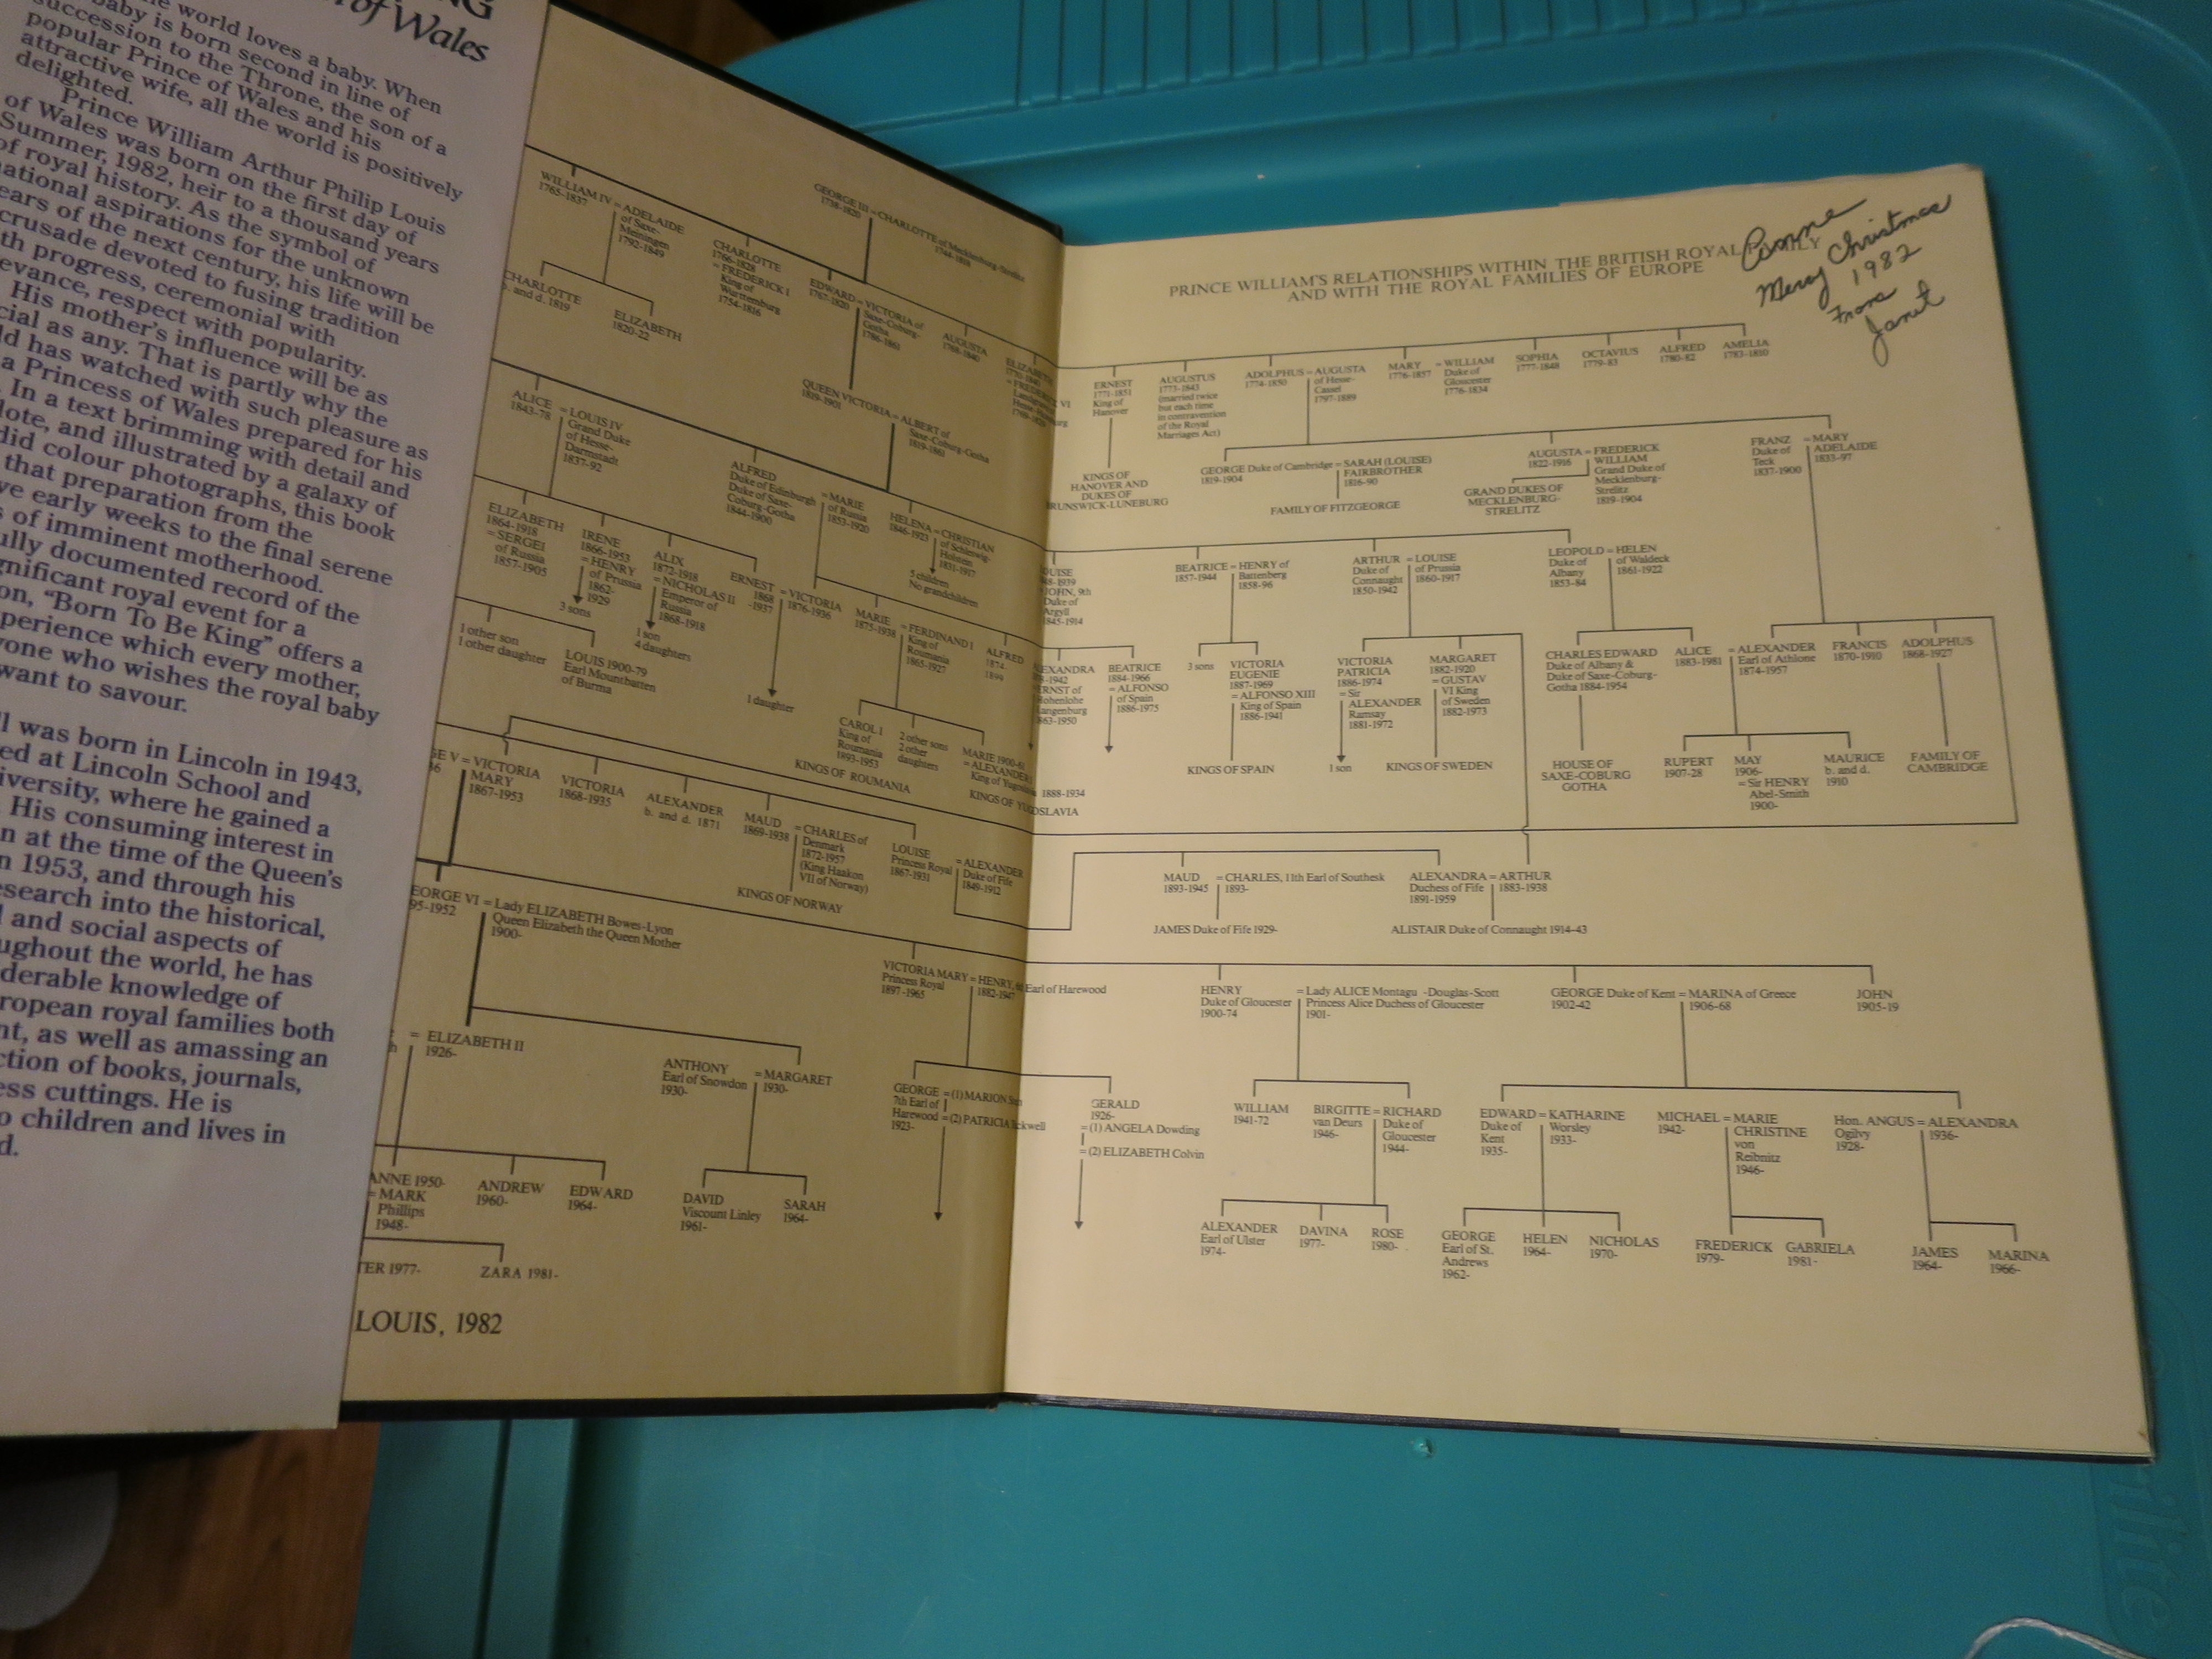 NG
of Wales
the world loves a baby. When
baby is born second in line of
succession to the Throne, the son of a
popular Prince of Wales and his
attractive wife, all the world is positively
delighted.
Prince William Arthur Philip Louis
of Wales was born on the first day of
Summer, 1982, heir to a thousand years
of royal history. As the symbol of
national aspirations for the unknown
ears of the next century, his life will be
crusade devoted to fusing tradition
th progress, ceremonial with
evance, respect with popularity.
His mother's influence will be as
cial as any. That is partly why the
ld has watched with such pleasure as
a Princess of Wales prepared for his
. In a text brimming with detail and
dote, and illustrated by a galaxy of
did colour photographs, this book
that preparation from the
ve early weeks to the final serene
s of imminent motherhood.
ully documented record of the
gnificant royal event for a
on, "Born To Be King" offers a
perience which every mother,
yone who wishes the royal baby
want to savour.
ll was born in Lincoln in 1943,
ed at Lincoln School and
iversity, where he gained a
. His consuming interest in
n at the time of the Queen's
n 1953, and through his
esearch into the historical,
l and social aspects of
ughout the world, he has
derable knowledge of
ropean royal families both
nt, as well as amassing an
ction of books, journals,
ess cuttings. He is
o children and lives in
d.
GEORGE III = CHARLOTTE of Mecklenburg-Strelitz
1738-1820 1744-1818
WILLIAM IV = ADELAIDE
1765-1837 of Saxe-
Meiningen
1792-1849
CHARLOTTE
1766-1828
= FREDERICK I
King of
Wurttemburg
1754-1816
EDWARD = VICTORIA of
1767-1820 Saxe-Coburg-
Gotha
1786-1861
AUGUSTA
1768-1840
ELIZABETH
1770-1840
CHARLOTTE
b. and d. 1819
ELIZABETH
1820-22
QUEEN VICTORIA = ALBERT of
1819-1901 Saxe-Coburg-Gotha
1819-1861
ALICE = LOUIS IV
1843-78 Grand Duke
of Hesse-
Darmstadt
1837-92
ALFRED = MARIE
Duke of Edinburgh of Russia
Duke of Saxe- 1853-1920
Coburg-Gotha
1844-1900
HELENA = CHRISTIAN
1846-1923 of Schleswig-
Holstein
1831-1917
5 children
No grandchildren
ELIZABETH
1864-1918
= SERGEI
of Russia
1857-1905
IRENE
1866-1953
= HENRY
of Prussia
1862-
1929
3 sons
ALIX
1872-1918
= NICHOLAS II
Emperor of
Russia
1868-1918
1 son
4 daughters
ERNEST = VICTORIA
1868 1876-1936
-1937
1 daughter
MARIE = FERDINAND I
1875-1938 King of
Roumania
1865-1927
ALFRED
1874
1899
1 other son
1 other daughter
LOUIS 1900-79
Earl Mountbatten
of Burma
CAROL I
King of
Roumania
1893-1953
2 other sons
2 other
daughters
MARIE 1900-61
= ALEXANDER I
King of Yugoslavia 1888-1934
KINGS OF ROUMANIA
KINGS OF YUGOSLAVIA
GE V = VICTORIA
36 MARY
1867-1953
VICTORIA
1868-1935
ALEXANDER
b. and d. 1871
MAUD = CHARLES of
1869-1938 Denmark
1872-1957
(King Haakon
VII of Norway)
KINGS OF NORWAY
LOUISE = ALEXANDER
Princess Royal Duke of Fife
1867-1931 1849-1912
EORGE VI = Lady ELIZABETH Bowes-Lyon
95-1952 Queen Elizabeth the Queen Mother
1900-
VICTORIA MARY = HENRY, 6th Earl of Harewood
Princess Royal 1882-1947
1897-1965
= ELIZABETH II
1926-
ANTHONY = MARGARET
Earl of Snowdon 1930-
1930-
GEORGE = (1) MARION Stein
7th Earl of
Harewood = (2) PATRICIA Tuckwell
1923-
ANNE 1950-
= MARK
Phillips
1948-
ANDREW
1960-
EDWARD
1964-
DAVID
Viscount Linley
1961-
SARAH
1964-
TER 1977-
ZARA 1981-
LOUIS, 1982
PRINCE WILLIAM'S RELATIONSHIPS WITHIN THE BRITISH ROYAL FAMILY
AND WITH THE ROYAL FAMILIES OF EUROPE
Anne
Merry Christmas
1982
From
Janet
ERNEST
1771-1851
King of
Hanover
AUGUSTUS
1773-1843
(married twice
but each time
in contravention
of the Royal
Marriages Act)
ADOLPHUS = AUGUSTA
1774-1850 of Hesse-
Cassel
1797-1889
MARY = WILLIAM
1776-1857 Duke of
Gloucester
1776-1834
SOPHIA
1777-1848
OCTAVIUS
1779-83
ALFRED
1780-82
AMELIA
1783-1810
KINGS OF
HANOVER AND
DUKES OF
BRUNSWICK-LUNEBURG
GEORGE Duke of Cambridge = SARAH (LOUISE)
1819-1904 FAIRBROTHER
1816-90
FAMILY OF FITZGEORGE
AUGUSTA = FREDERICK
1822-1916 WILLIAM
Grand Duke of
Mecklenburg-
Strelitz
1819-1904
GRAND DUKES OF
MECKLENBURG-
STRELITZ
FRANZ = MARY
Duke of ADELAIDE
Teck 1833-97
1837-1900
OUISE
48-1939
JOHN, 9th
Duke of
Argyll
1845-1914
BEATRICE = HENRY of
1857-1944 Battenberg
1858-96
ARTHUR = LOUISE
Duke of of Prussia
Connaught 1860-1917
1850-1942
LEOPOLD = HELEN
Duke of of Waldeck
Albany 1861-1922
1853-84
EXANDRA
-1942
ERNST of
Hohenlohe
Langenburg
1863-1950
BEATRICE
1884-1966
= ALFONSO
of Spain
1886-1975
3 sons
VICTORIA
EUGENIE
1887-1969
= ALFONSO XIII
King of Spain
1886-1941
KINGS OF SPAIN
VICTORIA
PATRICIA
1886-1974
= Sir
ALEXANDER
Ramsay
1881-1972
1 son
MARGARET
1882-1920
= GUSTAV
VI King
of Sweden
1882-1973
KINGS OF SWEDEN
CHARLES EDWARD
Duke of Albany &
Duke of Saxe-Coburg-
Gotha 1884-1954
HOUSE OF
SAXE-COBURG
GOTHA
ALICE = ALEXANDER
1883-1981 Earl of Athlone
1874-1957
FRANCIS
1870-1910
ADOLPHUS
1868-1927
RUPERT
1907-28
MAY
1906-
= Sir HENRY
Abel-Smith
1900-
MAURICE
b. and d.
1910
FAMILY OF
CAMBRIDGE
MAUD = CHARLES, 11th Earl of Southesk
1893-1945 1893-
JAMES Duke of Fife 1929-
ALEXANDRA = ARTHUR
Duchess of Fife 1883-1938
1891-1959
ALISTAIR Duke of Connaught 1914-43
HENRY = Lady ALICE Montagu -Douglas-Scott
Duke of Gloucester Princess Alice Duchess of Gloucester
1900-74 1901-
GEORGE Duke of Kent = MARINA of Greece
1902-42 1906-68
JOHN
1905-19
GERALD
1926-
= (1) ANGELA Dowding
= (2) ELIZABETH Colvin
WILLIAM
1941-72
BIRGITTE = RICHARD
van Deurs Duke of
1946- Gloucester
1944-
EDWARD = KATHARINE
Duke of Worsley
Kent 1933-
1935-
MICHAEL = MARIE
1942- CHRISTINE
von
Reibnitz
1946-
Hon. ANGUS = ALEXANDRA
Ogilvy 1936-
1928-
ALEXANDER
Earl of Ulster
1974-
DAVINA
1977-
ROSE
1980-
GEORGE
Earl of St.
Andrews
1962-
HELEN
1964-
NICHOLAS
1970-
FREDERICK
1979-
GABRIELA
1981-
JAMES
1964-
MARINA
1966-